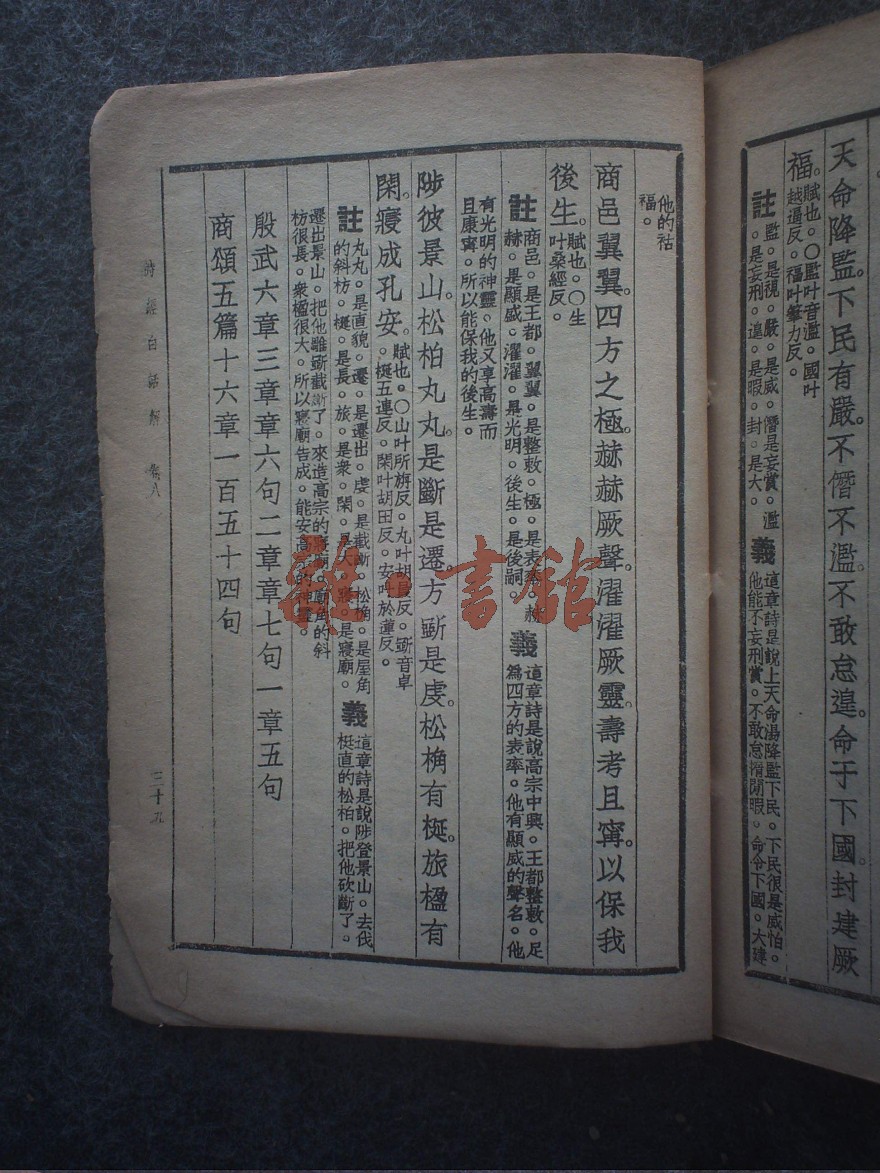 天命降監。下民有嚴。不僭不濫。不敢怠遑。命于下國。封建厥
福。賦也。〇監叶音濫。國叶
越逼反。福叶筆力反。
註
監。是視。嚴。是威。僭是妄賞。濫
。是妄刑。遑。是暇。封。是大。
義
這章詩是說上天命湯降監下民。下民很是威怕。
他能不妄刑賞。不敢怠惰閒暇。命令下國。大建
他的祜
福。
商邑翼翼。四方之極。赫赫厥聲。濯濯厥靈。壽考且寧。以保我
後生。賦也。〇生
叶桑經反。
註
商邑。是王都。翼翼。是整敕。極。是表率。赫
赫。是顯盛。濯濯。是光明。後生。是後嗣。
義
這章詩是說高宗中興。王都整敕。足
為四方的表率。他有顯盛的聲名。他
有光明的神靈。他又享高壽而
且康寧。所以能保我的後生。
陟彼景山。松柏丸丸。是斷是遷。方斲是虔。松桷有梴。旅楹有
閑。寢成孔安。賦也。〇山叶所旃反。丸叶胡員反。斲音卓
。梴五連反。閑叶胡田反。安叶於連反。
註
丸丸。是直貌。遷。是遷出。虔。是截斷。松桷。是屋角
的斜枋。梴。是長。旅。是衆。閑。是大。寢。是寢廟。
義
這章詩是說陟登景山。去伐
梃直的松柏。把他砍斷了。
遷出景山。把他雕斲截斷了。來造高宗的寢廟。廟角的斜
枋很長。衆楹很大。所以寢廟告成。能安高宗的神靈。
殷武六章三章章六句二章章七句一章五句
商頌五篇十六章一百五十四句
詩經白話解 卷八
三十九
書館